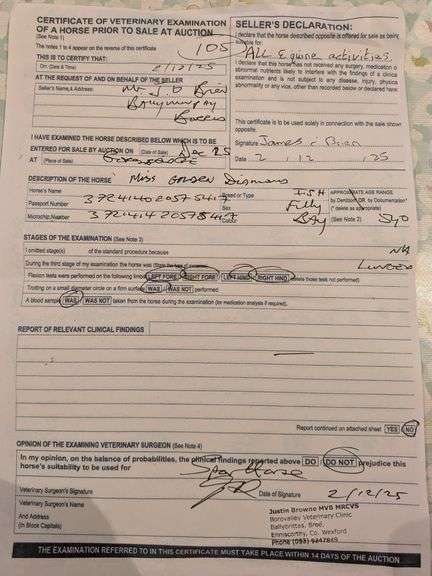 CERTIFICATE OF VETERINARY EXAMINATION
OF A HORSE PRIOR TO SALE AT AUCTION
(See Note 1)
The notes 1 to 4 appear on the reverse of this certificate
105
THIS IS TO CERTIFY THAT:
On (Date & Time) 2/12/25
AT THE REQUEST OF AND ON BEHALF OF THE SELLER
Seller's Name & Address: Mr J O
I HAVE EXAMINED THE HORSE DESCRIBED BELOW WHICH IS TO BE
ENTERED FOR SALE BY AUCTION ON (Date of Sale) Dec 25
AT (Place of Sale)
SELLER'S DECLARATION:
I declare that the horse described opposite is offered for sale as being
suitable for:
ALL Equine activities
I declare that this horse has not received any surgery, medication or
abnormal nutrients likely to interfere with the findings of a clinical
examination and is not subject to any disease, injury, physical
abnormality or any vice, other than recorded below or declared here:
This certificate is to be used solely in connection with the sale shown
opposite.
Signature James
Date 2 . 12 . 25
DESCRIPTION OF THE HORSE
Horse's Name Miss Golden Diamond
Passport Number
Microchip Number
Breed or Type I.S.H
Sex Filly
Colour Bay
APPROXIMATE AGE RANGE
by Dentition OR by Documentation*
(* delete as appropriate)
(See Note 2) 5yo
STAGES OF THE EXAMINATION (See Note 3)
I omitted stage(s) of the standard procedure because NA
During the third stage of my examination the horse was Lunged
Flexion tests were performed on the following limbs LEFT FORE RIGHT FORE LEFT HIND RIGHT HIND (delete those tests not performed)
Trotting on a small diameter circle on a firm surface WAS WAS NOT performed
A blood sample WAS WAS NOT taken from the horse during the examination (for medication analysis if required).
REPORT OF RELEVANT CLINICAL FINDINGS
Report continued on attached sheet YES NO
OPINION OF THE EXAMINING VETERINARY SURGEON (See Note 4)
In my opinion, on the balance of probabilities, the clinical findings reported above DO DO NOT prejudice this
horse's suitability to be used for Sport Horse
Veterinary Surgeon's Signature
Date of Signature 2/12/25
Veterinary Surgeon's Name
And Address
(In Block Capitals)
Justin Browne MVB MRCVS
Borovalley Veterinary Clinic
Ballyorittas, Bree,
Enniscorthy, Co. Wexford
THE EXAMINATION REFERRED TO IN THIS CERTIFICATE MUST TAKE PLACE WITHIN 14 DAYS OF THE AUCTION